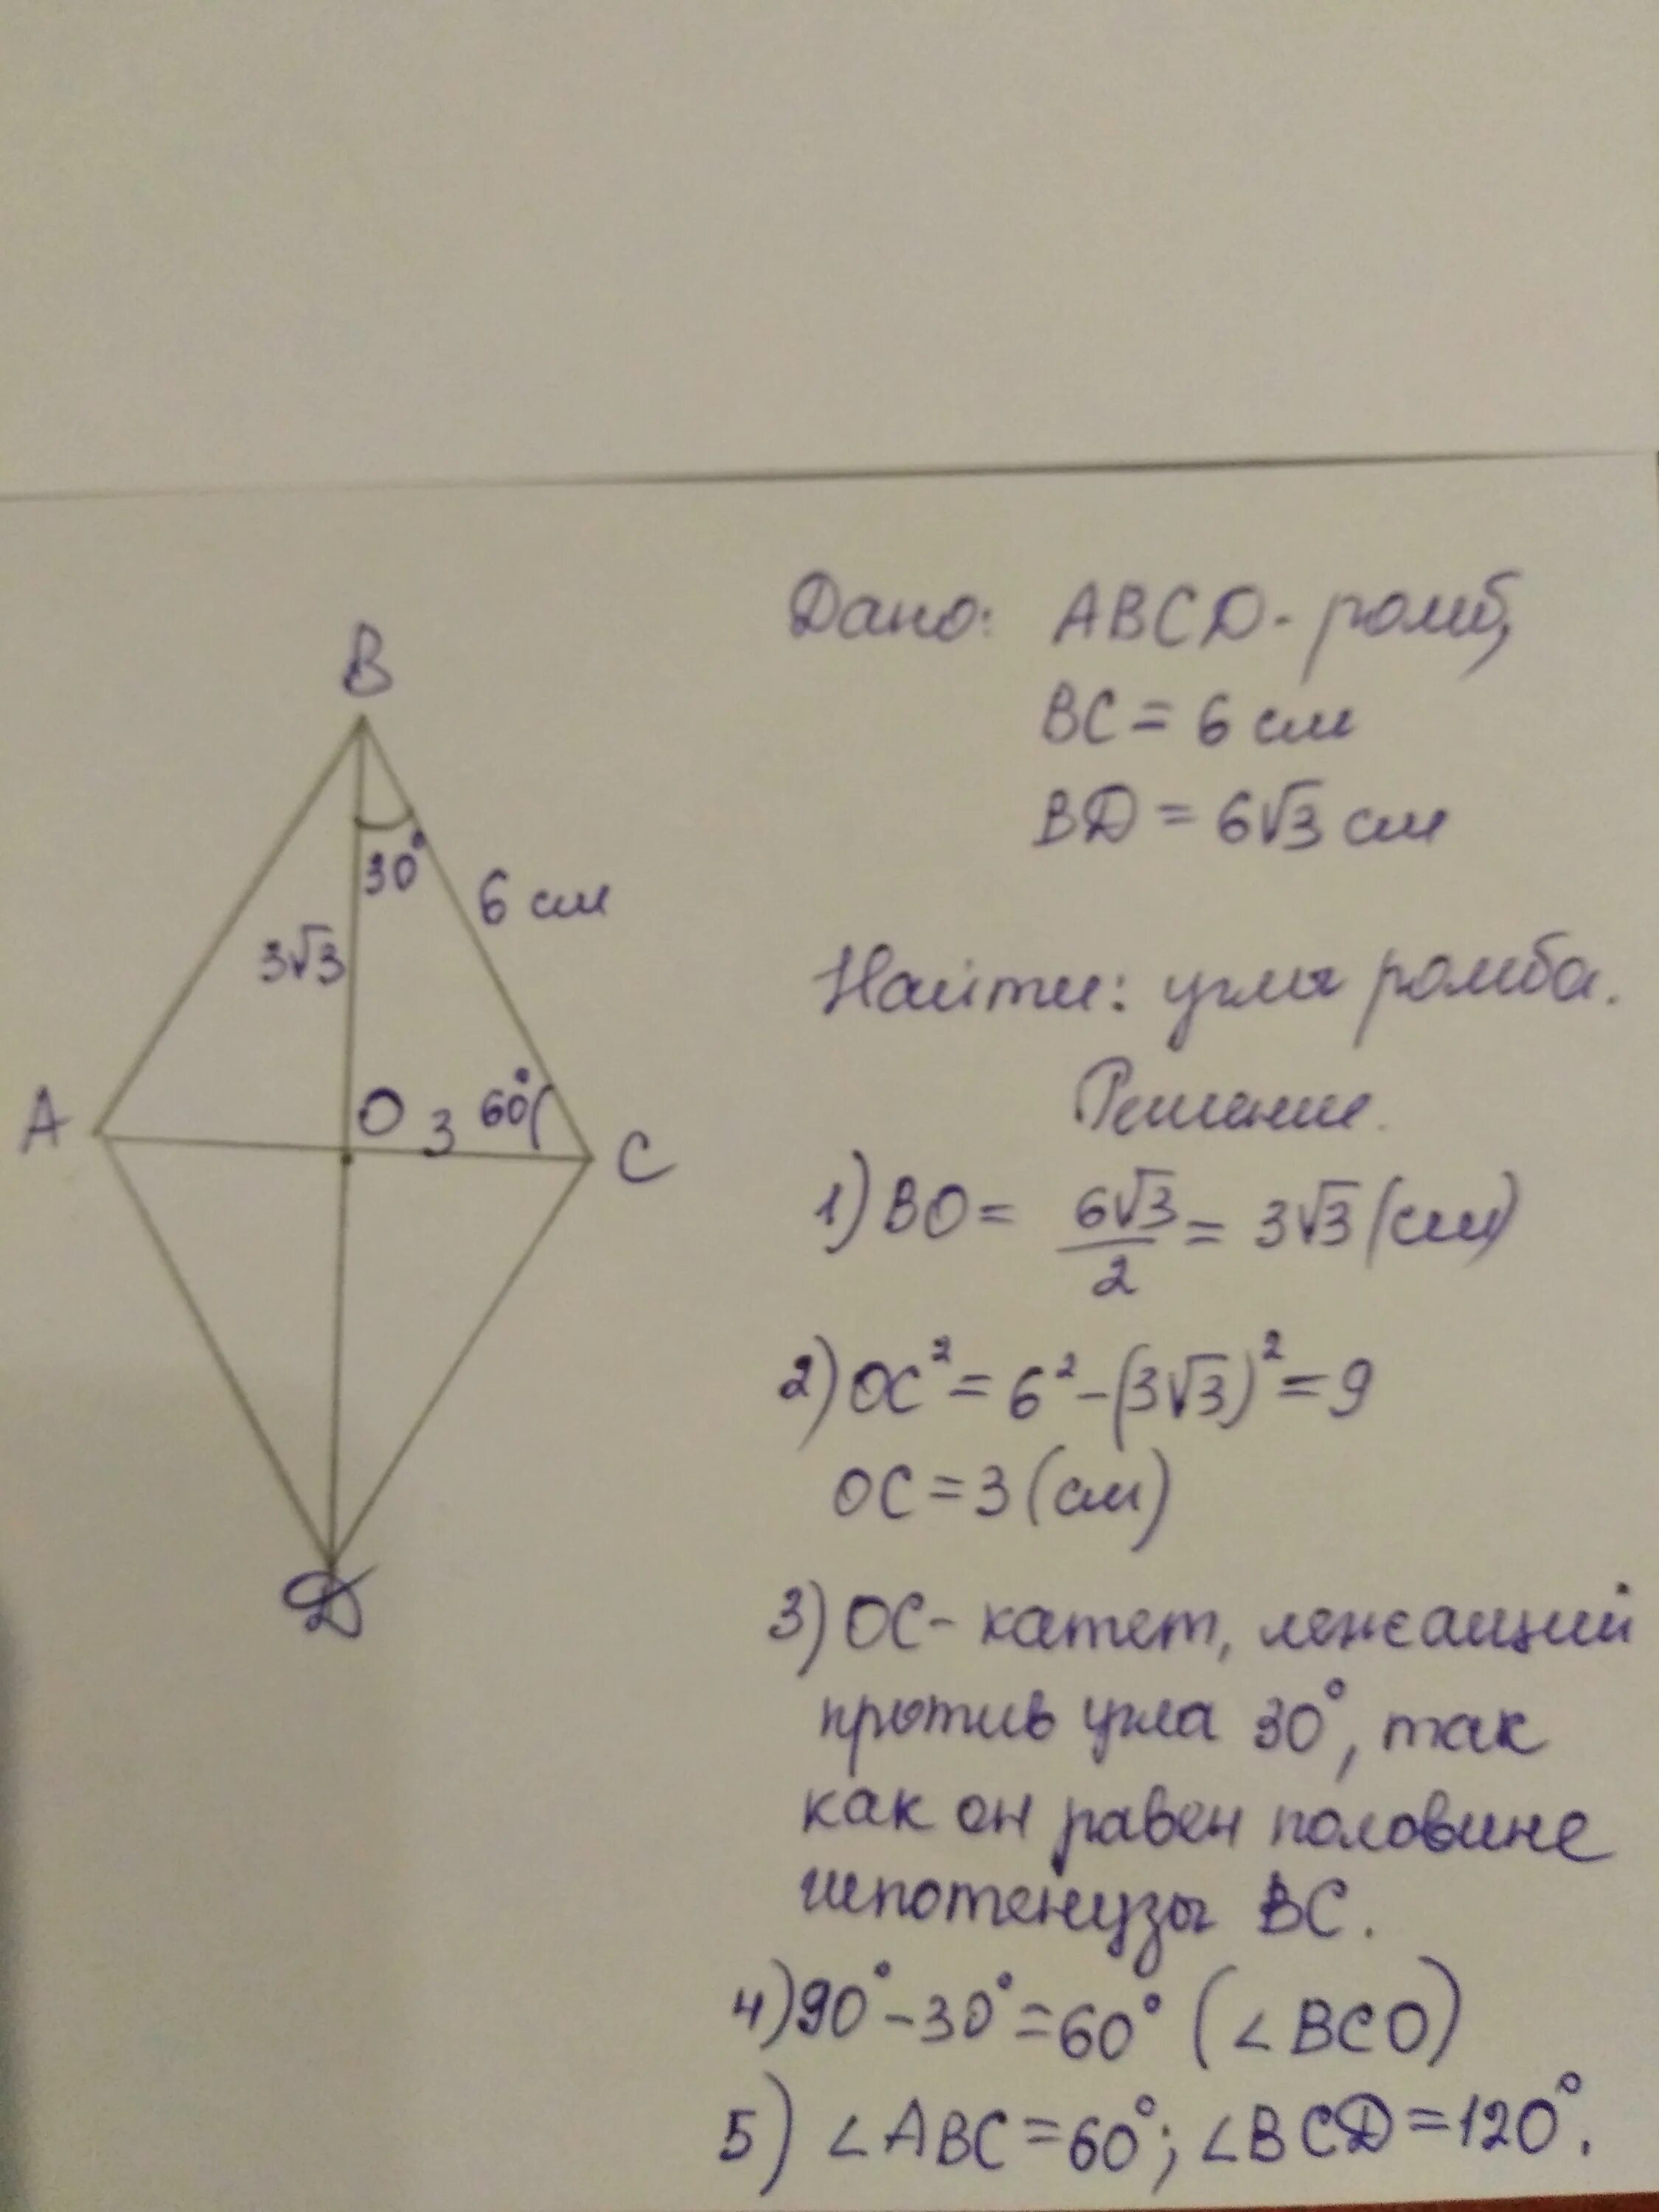 B
30°
6 см
3√3
A
O
3
60°
C
D
Дано: ABCD - ромб,
BC = 6 см
BD = 6√3 см
Найти: углы ромба.
Решение.
1) BO = 6√3/2 = 3√3 (см)
2) OC² = 6² - (3√3)² = 9
OC = 3 (см)
3) OC - катет, лежащий
против угла 30°, так
как он равен половине
гипотенузы BC.
4) 90° - 30° = 60° (∠BCO)
5) ∠ABC = 60°; ∠BCD = 120°.